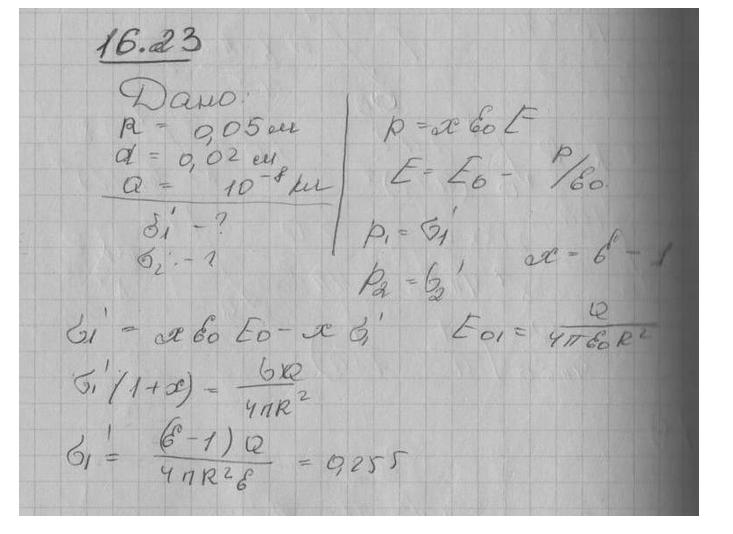 16.23
Дано:
R = 0,05 м
d = 0,02 м
Q = 10⁻⁸ Кл
σ₁' - ?
σ₂' - ?
p = x ε₀ E
E = E₀ - P/ε₀
p₁ = σ₁'
p₂ = σ₂'
x = ε - 1
σ₁' = x ε₀ E₀ - x σ₁'
E₀₁ = Q / 4πε₀R²
σ₁' (1+x) = xQ / 4πR²
σ₁' = (ε - 1) Q / 4πR²ε = 0,255